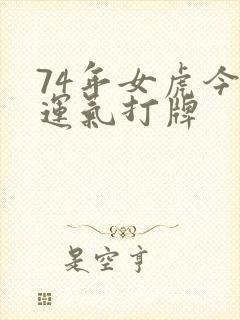 74年女虎今
運氣打牌
是空亨